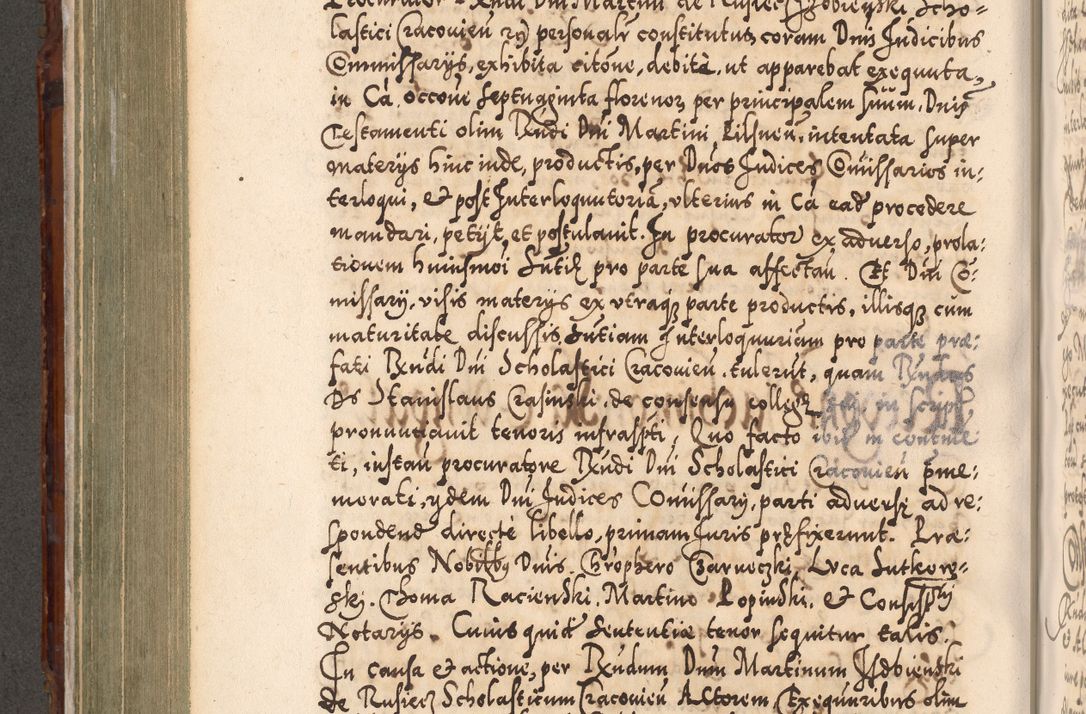 Procurator Rndi Dni Martini de Rusiec Izdbieński Scho-
lastici Cracovien personalr constitutus, coram Dnis Judicibus
Commissarijs, exhibita citõne, debitè, ut apparebat exequuta,
in Cã occõne septuaginta florenor per principalem suum, Dnis
Testamenti olim Rndi Dni Martini intentata super
materijs hinc inde, productis, per Dnos Judices Comissarios in-
terloqui, et post Interloquutoriã, vlterius in Cã eadē procedere
mandari, petijt, et postulavit. Ja procurator ex adverso, prola-
tionem huiusmõi pro parte sua affectav. Et Dni Cõ-
missarij, visis materijs ex vtraq3 parte productis, illisq3 cum
maturitate discussis, Sntiam Interloquutriam pro parte præ-
fati Rndi Dni Scholastici Cracovien. tulerūt, quam Rndus
Ds Stanislaus Crasinski, de consensu colleg in script,
pronuntiavit tenoris infraspti, Quo facto ibid in contine
ti, instan procuratore Rndi Dni Scholastici Cracovien p̄me-
morati, ijdem Dni Judices Comissarij, parti adversę ad re-
spondend directè libello, primam Juris pręfixerunt. Præ-
sentibus Nobilibus Dnis. Chrophero Czarnecki, Luca Sutkow-
ski. Thoma Racienski. Martino Popinski. et Conscpty
Notarijs. Cuius quidē Sententiæ tenor sequitur talis.
In causa et actione, per Rndum Dnum Martinum Izdbienski
de Rusiec Scholasticum Cracovien Actorem, Exequutribus olim